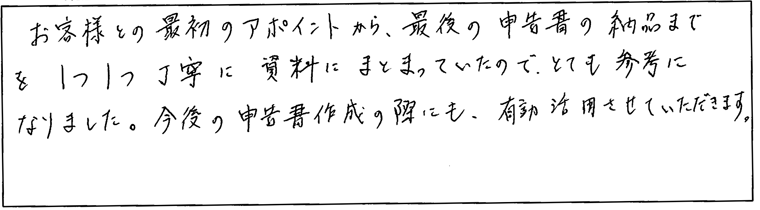 お客様との最初のアポイントから、最後の申告書の納品まで
を1つ1つ丁寧に資料にまとまっていたので、とても参考に
なりました。今後の申告書作成の際にも、有効活用させていただきます。